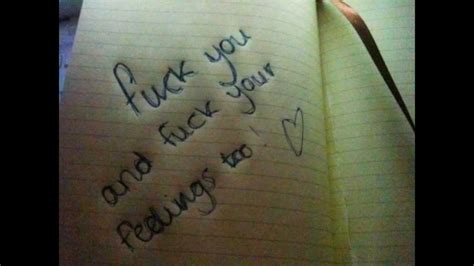 fuck you
and fuck your
feelings too! ♡